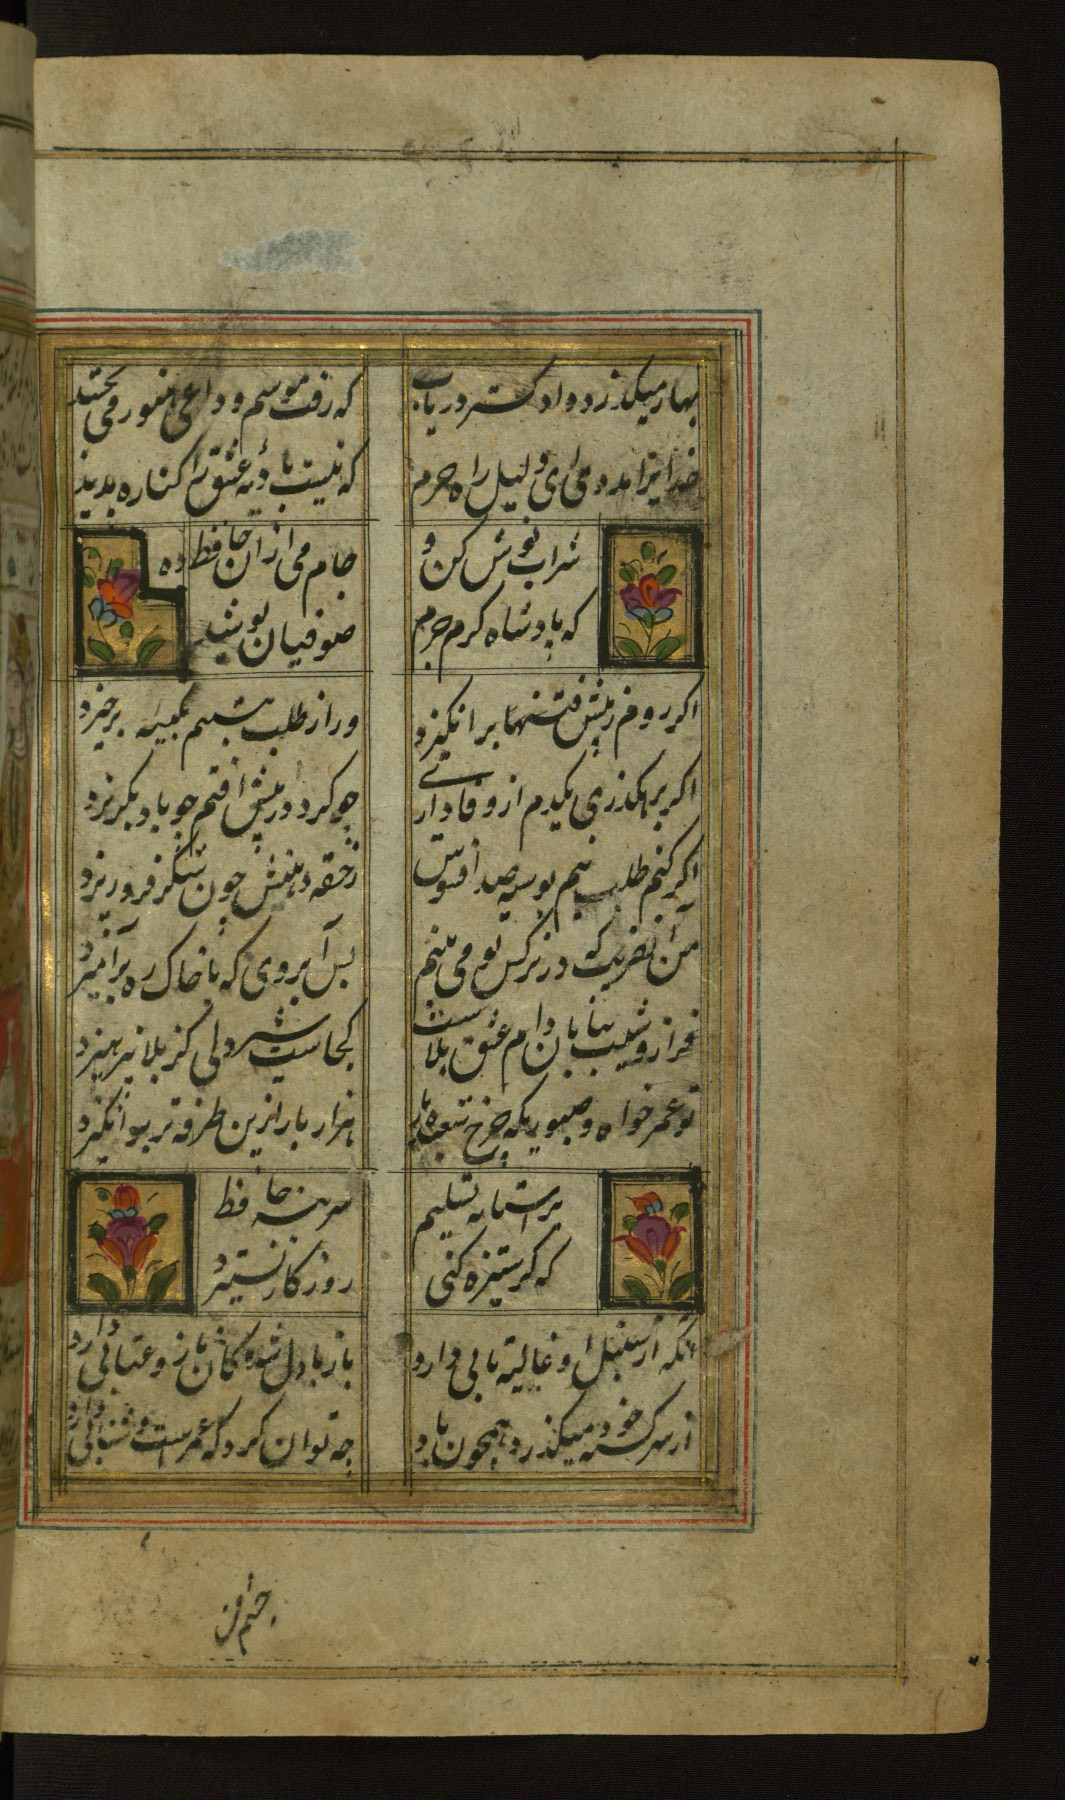 بهار میکذرد داد کسترد دریاب
که رفت موسم و داعی هنوز می نچشید
خدایرا مددی ای دلیل راه حرم
که نیست بادیه عشق را کناره بدید
شراب نوش کن و
جام می ازان حافظ ده
که پادشاه کرم جرم
صوفیان پوشید
اکر روم زپیش فتنها برانکیزد
ور از طلب بنشینم بکینه برخیزد
اکر برهکذری یکدم از وفاداری
چو کرد در پیش افتم چو باد بکریزد
اکر کنم طلب نیم بوسه صد افسوس
زحقه دهنش چون شکر فرو ریزد
من آن فریب که در نرکس تو می بینم
بس آبروی که با خاک ره برآمیزد
فراز و شیب بیابان دام عشق بلاست
کجاست شیردلی کز بلا نپرهیزد
تو عمر خواه و صبوری که چرخ شعبده باز
هزار بار ازین طرفه تر برانکیزد
بر آستانه تسلیم
سر بنه حافظ
که کر ستیزه کنی
روزکار نستیزد
آنکه از سنبل او غالیه تابی دارد
باز با دل شدکان ناز و عتابی دارد
از سر کشته خود میکذرد همچون باد
چه توان کرد که عمرست و شتابی دارد